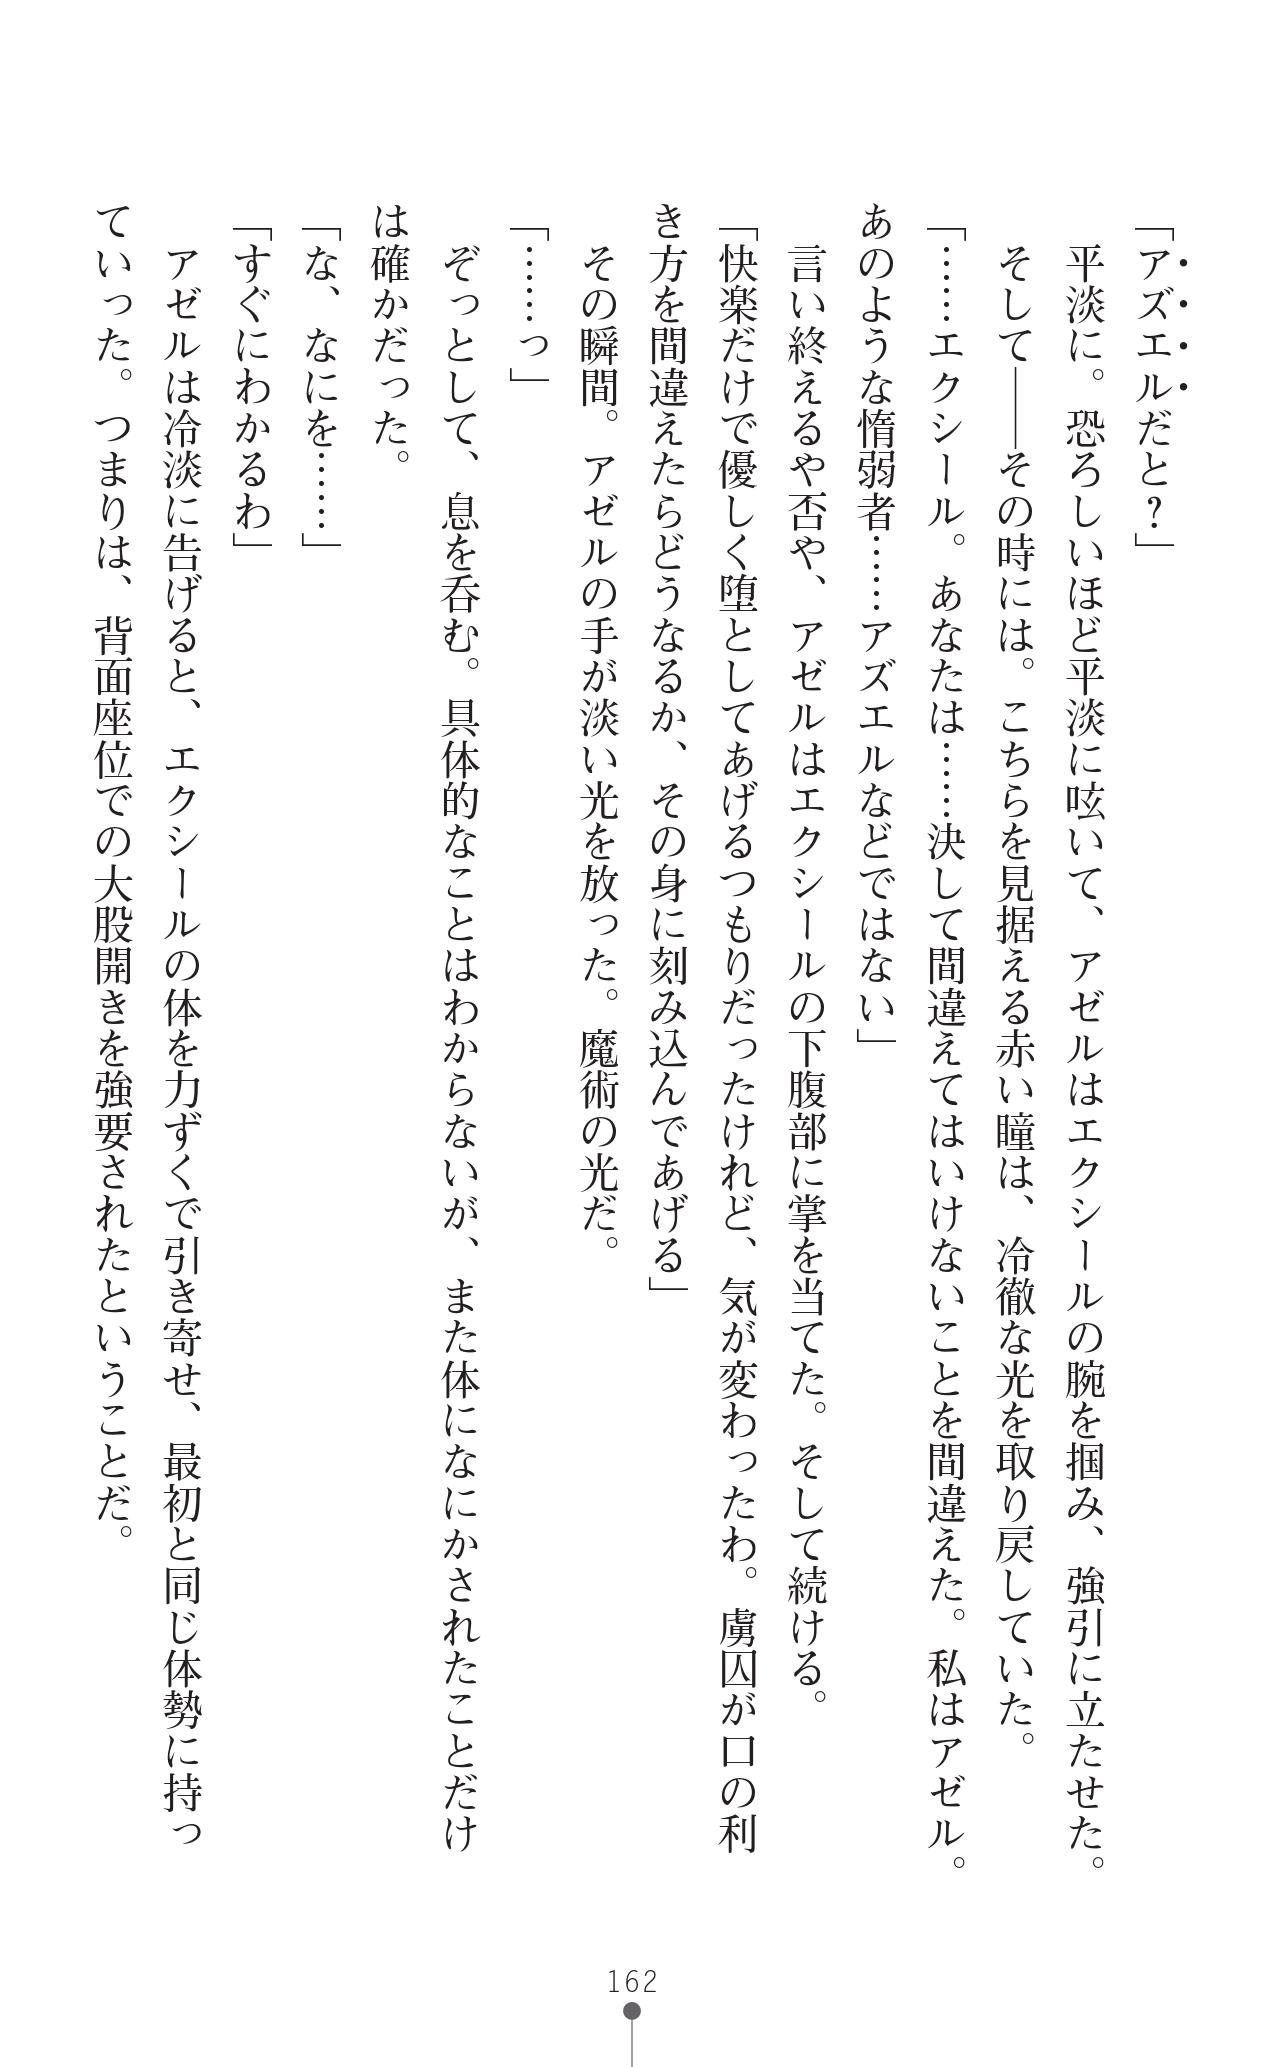 「アズエルだと？」
　平淡に。恐ろしいほど平淡に呟いて、アゼルはエクシールの腕を掴み、強引に立たせた。
　そして――その時には。こちらを見据える赤い瞳は、冷徹な光を取り戻していた。
「……エクシール。あなたは……決して間違えてはいけないことを間違えた。私はアゼル。
あのような惰弱者……アズエルなどではない」
　言い終えるや否や、アゼルはエクシールの下腹部に掌を当てた。そして続ける。
「快楽だけで優しく堕としてあげるつもりだったけれど、気が変わったわ。虜囚が口の利
き方を間違えたらどうなるか、その身に刻み込んであげる」
　その瞬間。アゼルの手が淡い光を放った。魔術の光だ。
「……っ」
　ぞっとして、息を呑む。具体的なことはわからないが、また体になにかされたことだけ
は確かだった。
「な、なにを……」
「すぐにわかるわ」
　アゼルは冷淡に告げると、エクシールの体を力ずくで引き寄せ、最初と同じ体勢に持っ
ていった。つまりは、背面座位での大股開きを強要されたということだ。
162